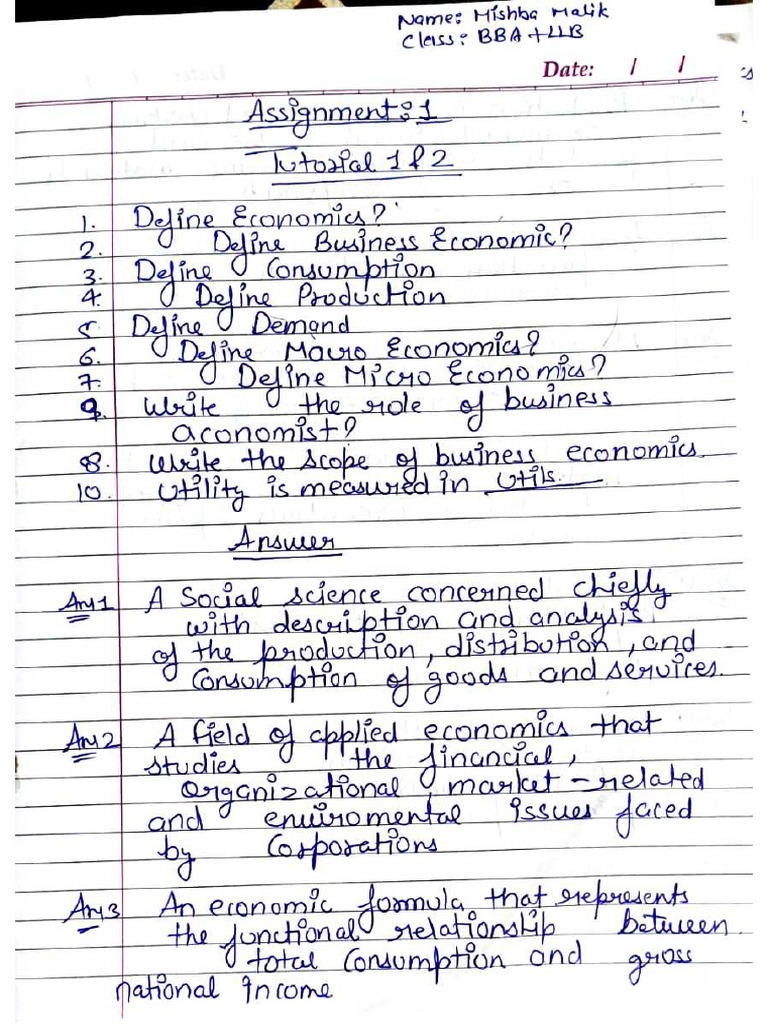 Name: Mishba Malik
Class: BBA + LLB
Date: / /
Assignment: 1
Tutorial 1 & 2
1. Define Economics?
2. Define Business Economic?
3. Define Consumption
4. Define Production
5 Define Demand
6. Define Macro Economics?
7. Define Micro Economics?
9. Write the role of business
aconomist?
8. Write the scope of business economics.
10. Utility is measured in Utils.
Answer
Ans 1 A Social science concerned chiefly
with description and analysis
of the production, distribution, and
Consumption of goods and services.
Ans 2 A field of applied economics that
studies the financial,
organizational, market-related
and enviromental issues faced
by Corporations
Ans 3 An economic formula that represents
the functional relationship between
total Consumption and gross
national income